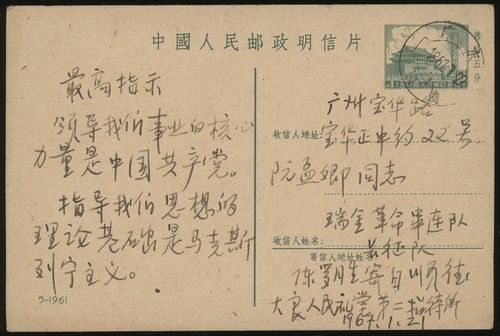 中國人民邮政明信片
售价五分
最高指示
领导我们事业的核心
力量是中国共产党。
指导我们思想的
理论基础是马克斯
列宁主义。
5-1961
广州宝华路
收信人地址：宝华正中约22号
阮孟卿同志
瑞金革命串连队
收信人姓名：长征队
寄信人地址姓名：
大良人民礼堂第二接待所
1967.1.21